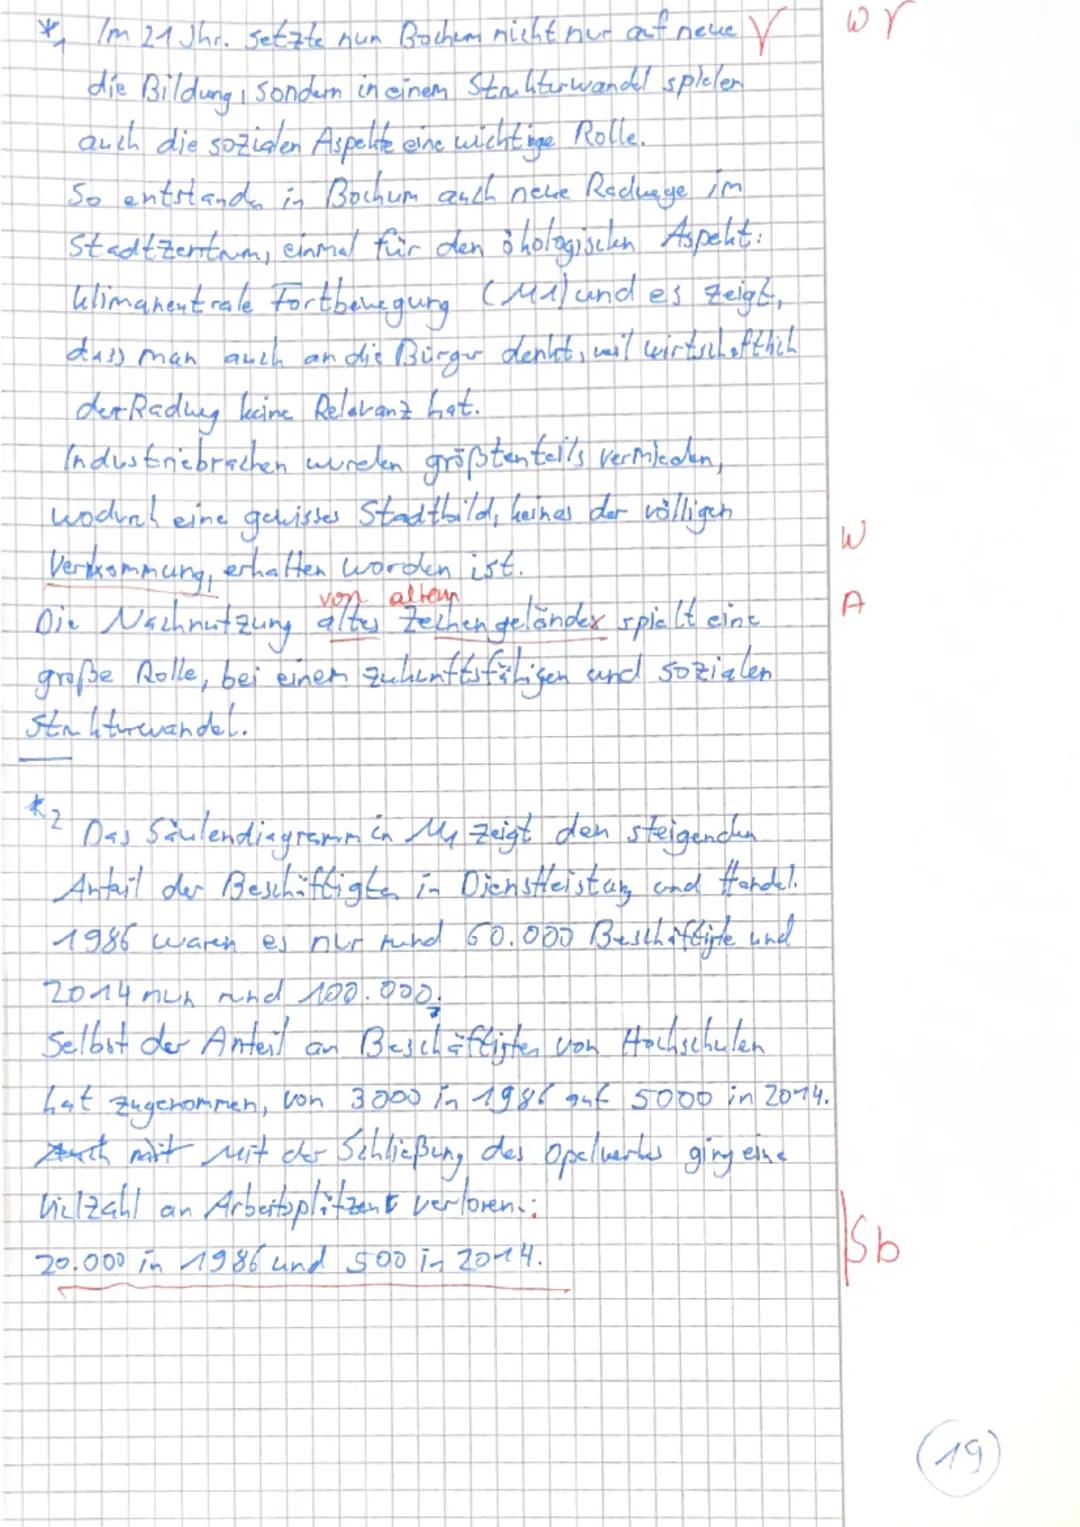 *1 Im 21 Jhr. setzte nun Bochum nicht nur auf neue √ W r
die Bildung, sondern in einem Strukturwandel spielen
auch die sozialen Aspekte eine wichtige Rolle.
So entstanden in Bochum auch neue Radwege im
Stadtzentrum, einmal für den ökologischen Aspekt:
klimaneutrale Fortbewegung (M1) und es zeigt,
dass man auch an die Bürger denkt, weil wirtschaftlich
der Radweg keine Relevanz hat.
Industriebrachen wurden größtenteils vermieden,
wodurch eine gewisses Stadtbild, keines der völligen W
Verkommung, erhalten worden ist.
von altem
Die Nachnutzung altes Zechengeländex spielt eine A
große Rolle, bei einem zukunftsfähigen und sozialen
Strukturwandel.
*2
Das Säulendiagramm in M4 zeigt den steigenden
Anteil der Beschäftigten in Dienstleistung und Handel.
1986 waren es nur rund 60.000 Beschäftigte und
2014 nun rund 100.000.
Selbst der Anteil an Beschäftigten von Hochschulen
hat zugenommen, von 3000 in 1986 auf 5000 in 2014.
Auch mit Mit der Schließung des Opelwerks ging eine
Vielzahl an Arbeitsplätzen verloren.:
20.000 in 1986 und 500 in 2014. Sb
19